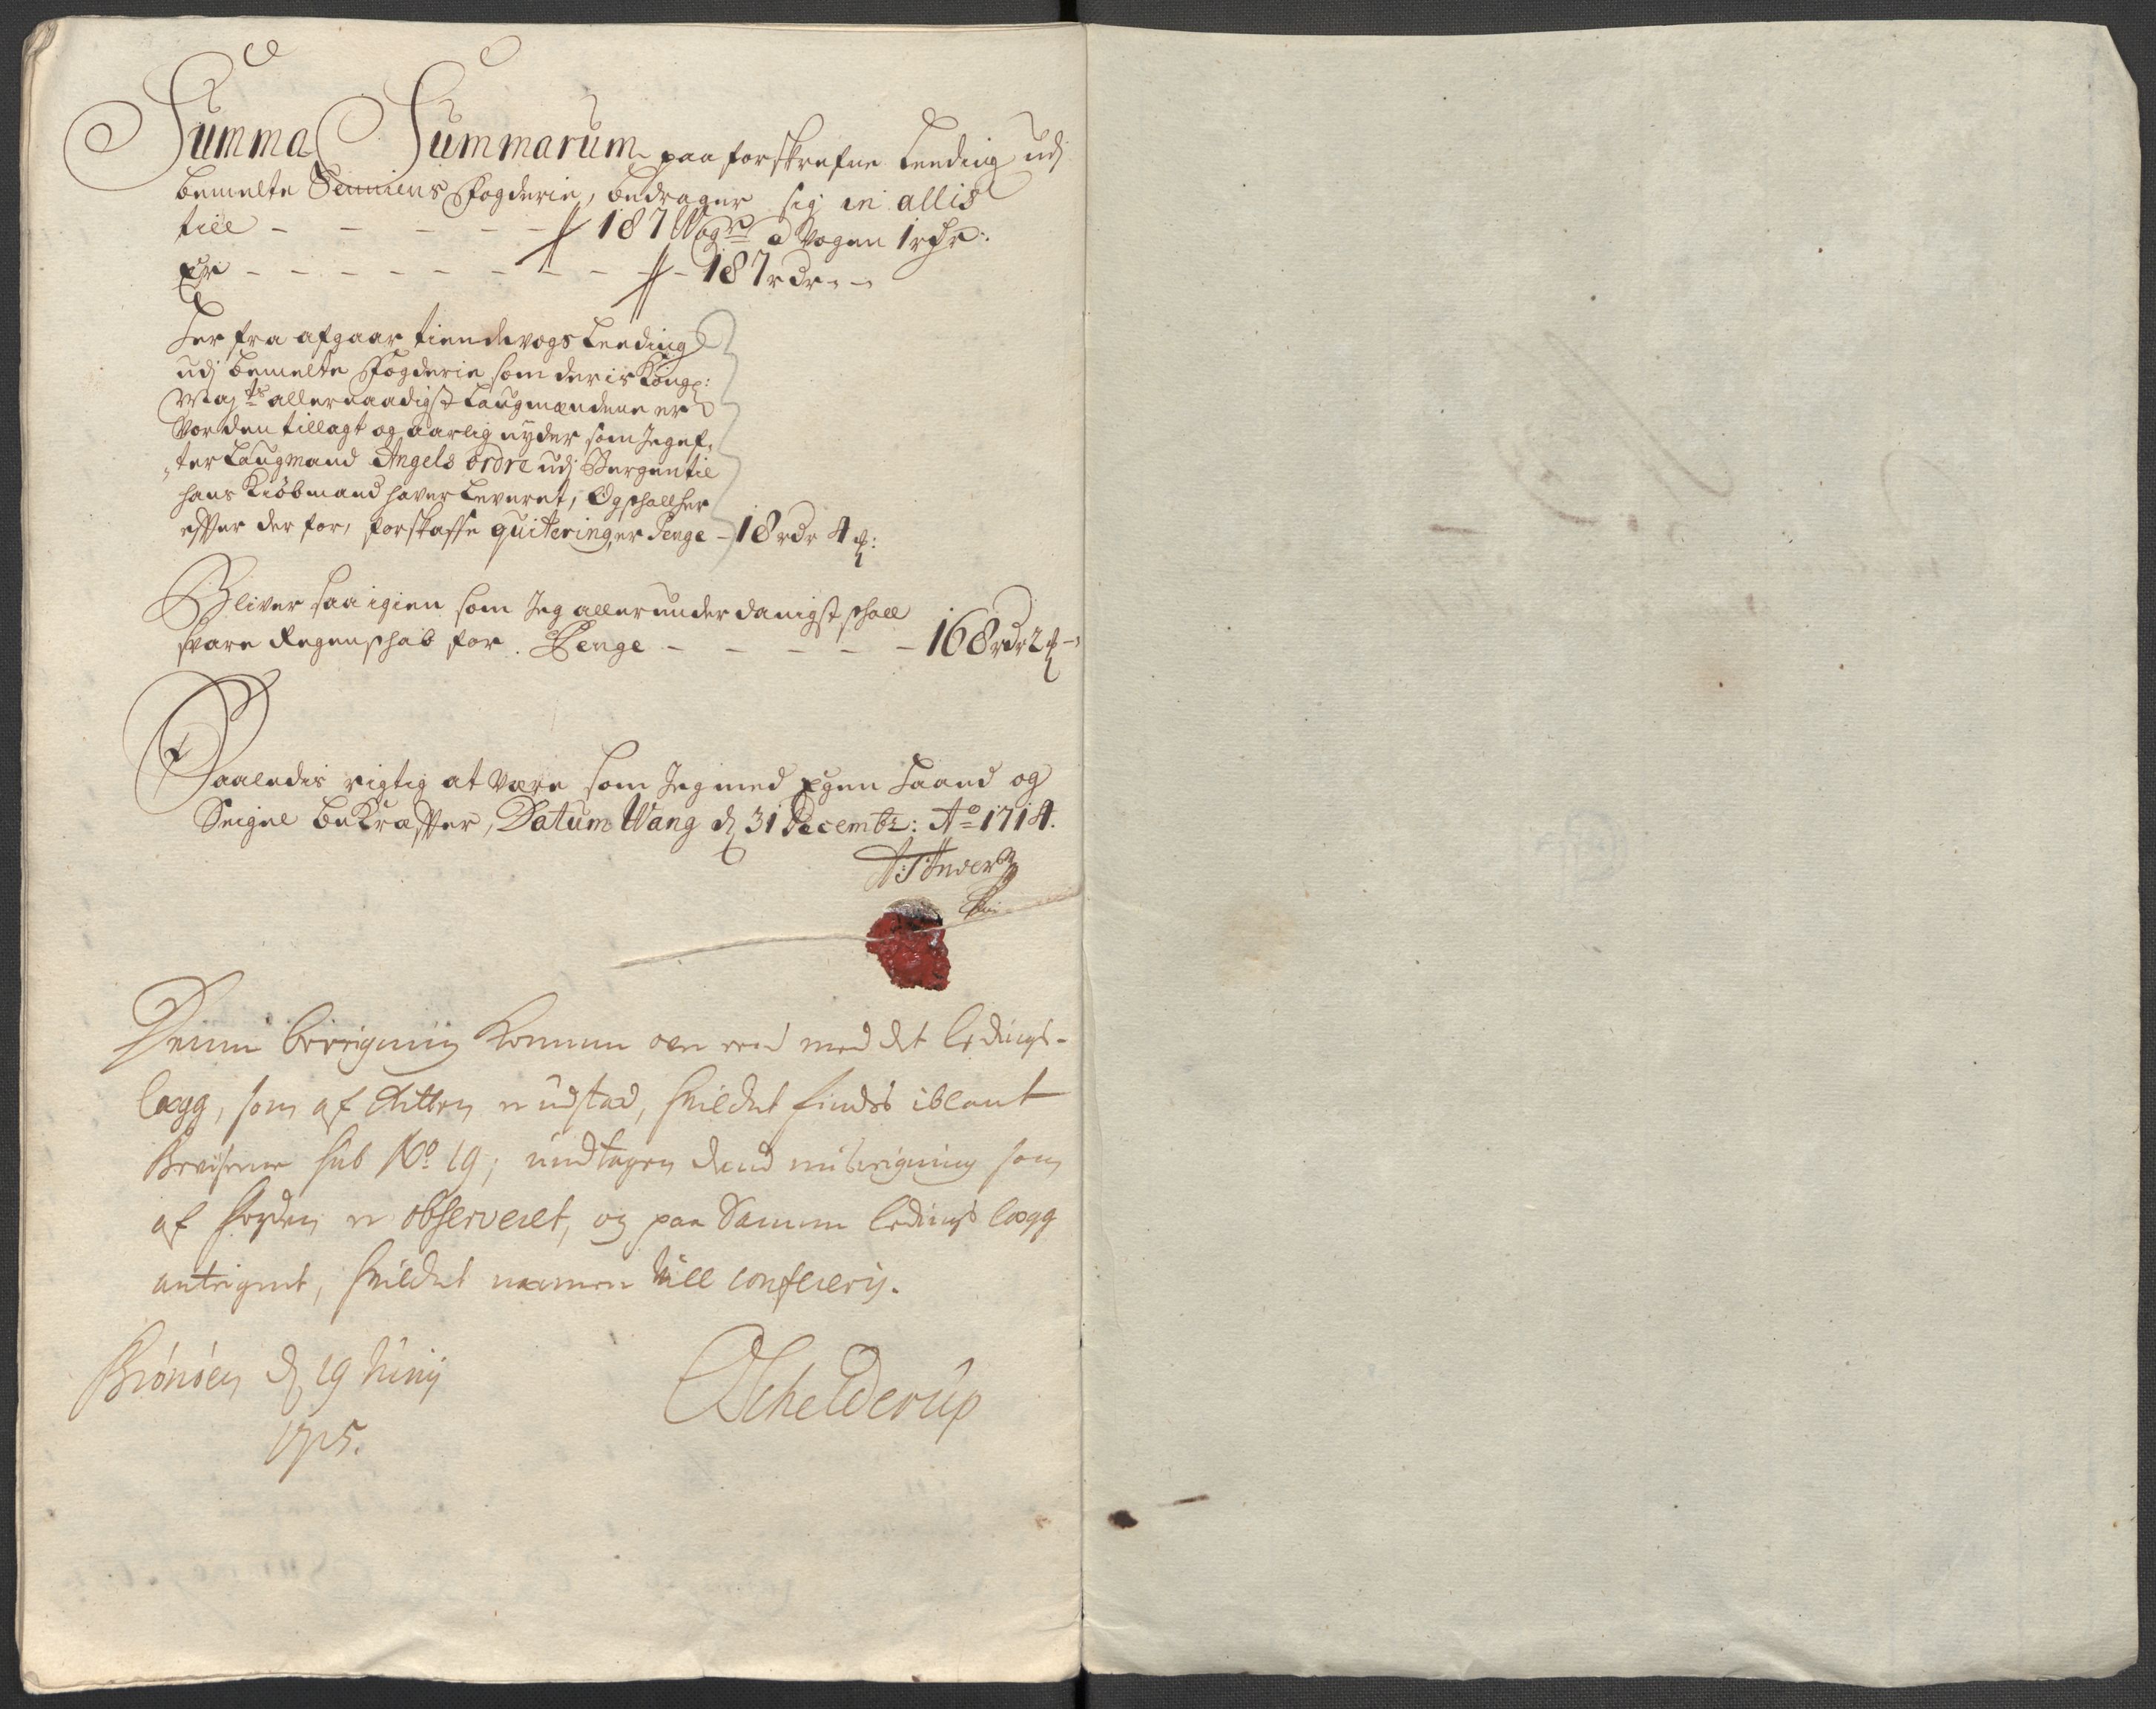 Summa Summarum paa forskrefne Leeding udj
bemelte Senniens Fogderie, bedrager sig in allis
till - - - - - 187 Wogr a Vogen 1 rdr:
Er - - - - - - - - - 187 rdr - -
Her fra afgaar tiende vogs Leeding
udj bemelte Fogderie som deris Kongl:
Maj:ts allernaadigst Laugmendene er
Vorden tillagt og aarlig nyder som Jeg ef,
,ter Laugmand Angels ordre udj Bergen til
hans Kiöbmand haver Leveret, Og schall her
effter der for, forskaffe quitering, er Penge - 18 rdr 4 ß:
Bliver saa igien som Jeg allerunderdanigst schall
svare Regenschab for. Penge - - - - - 168 rdr 2 ß -
Saaledis rigtig at være som Jeg med Egen Haand og
Seigel bekræffter, Datum Wang d 31 Decembr: Ao 1714.
Denne berigning kommer over eens med det ledings-
lægg, som af Retten er udstæd, hvilchet findes iblant
Beviserne sub No 19; undtagen dend som
af er observeret, og paa Samme ledings lægg
antegnet, hvilchet nærmere vill confereris.
Brönöen d 19 Junij
1715.
Schelderup